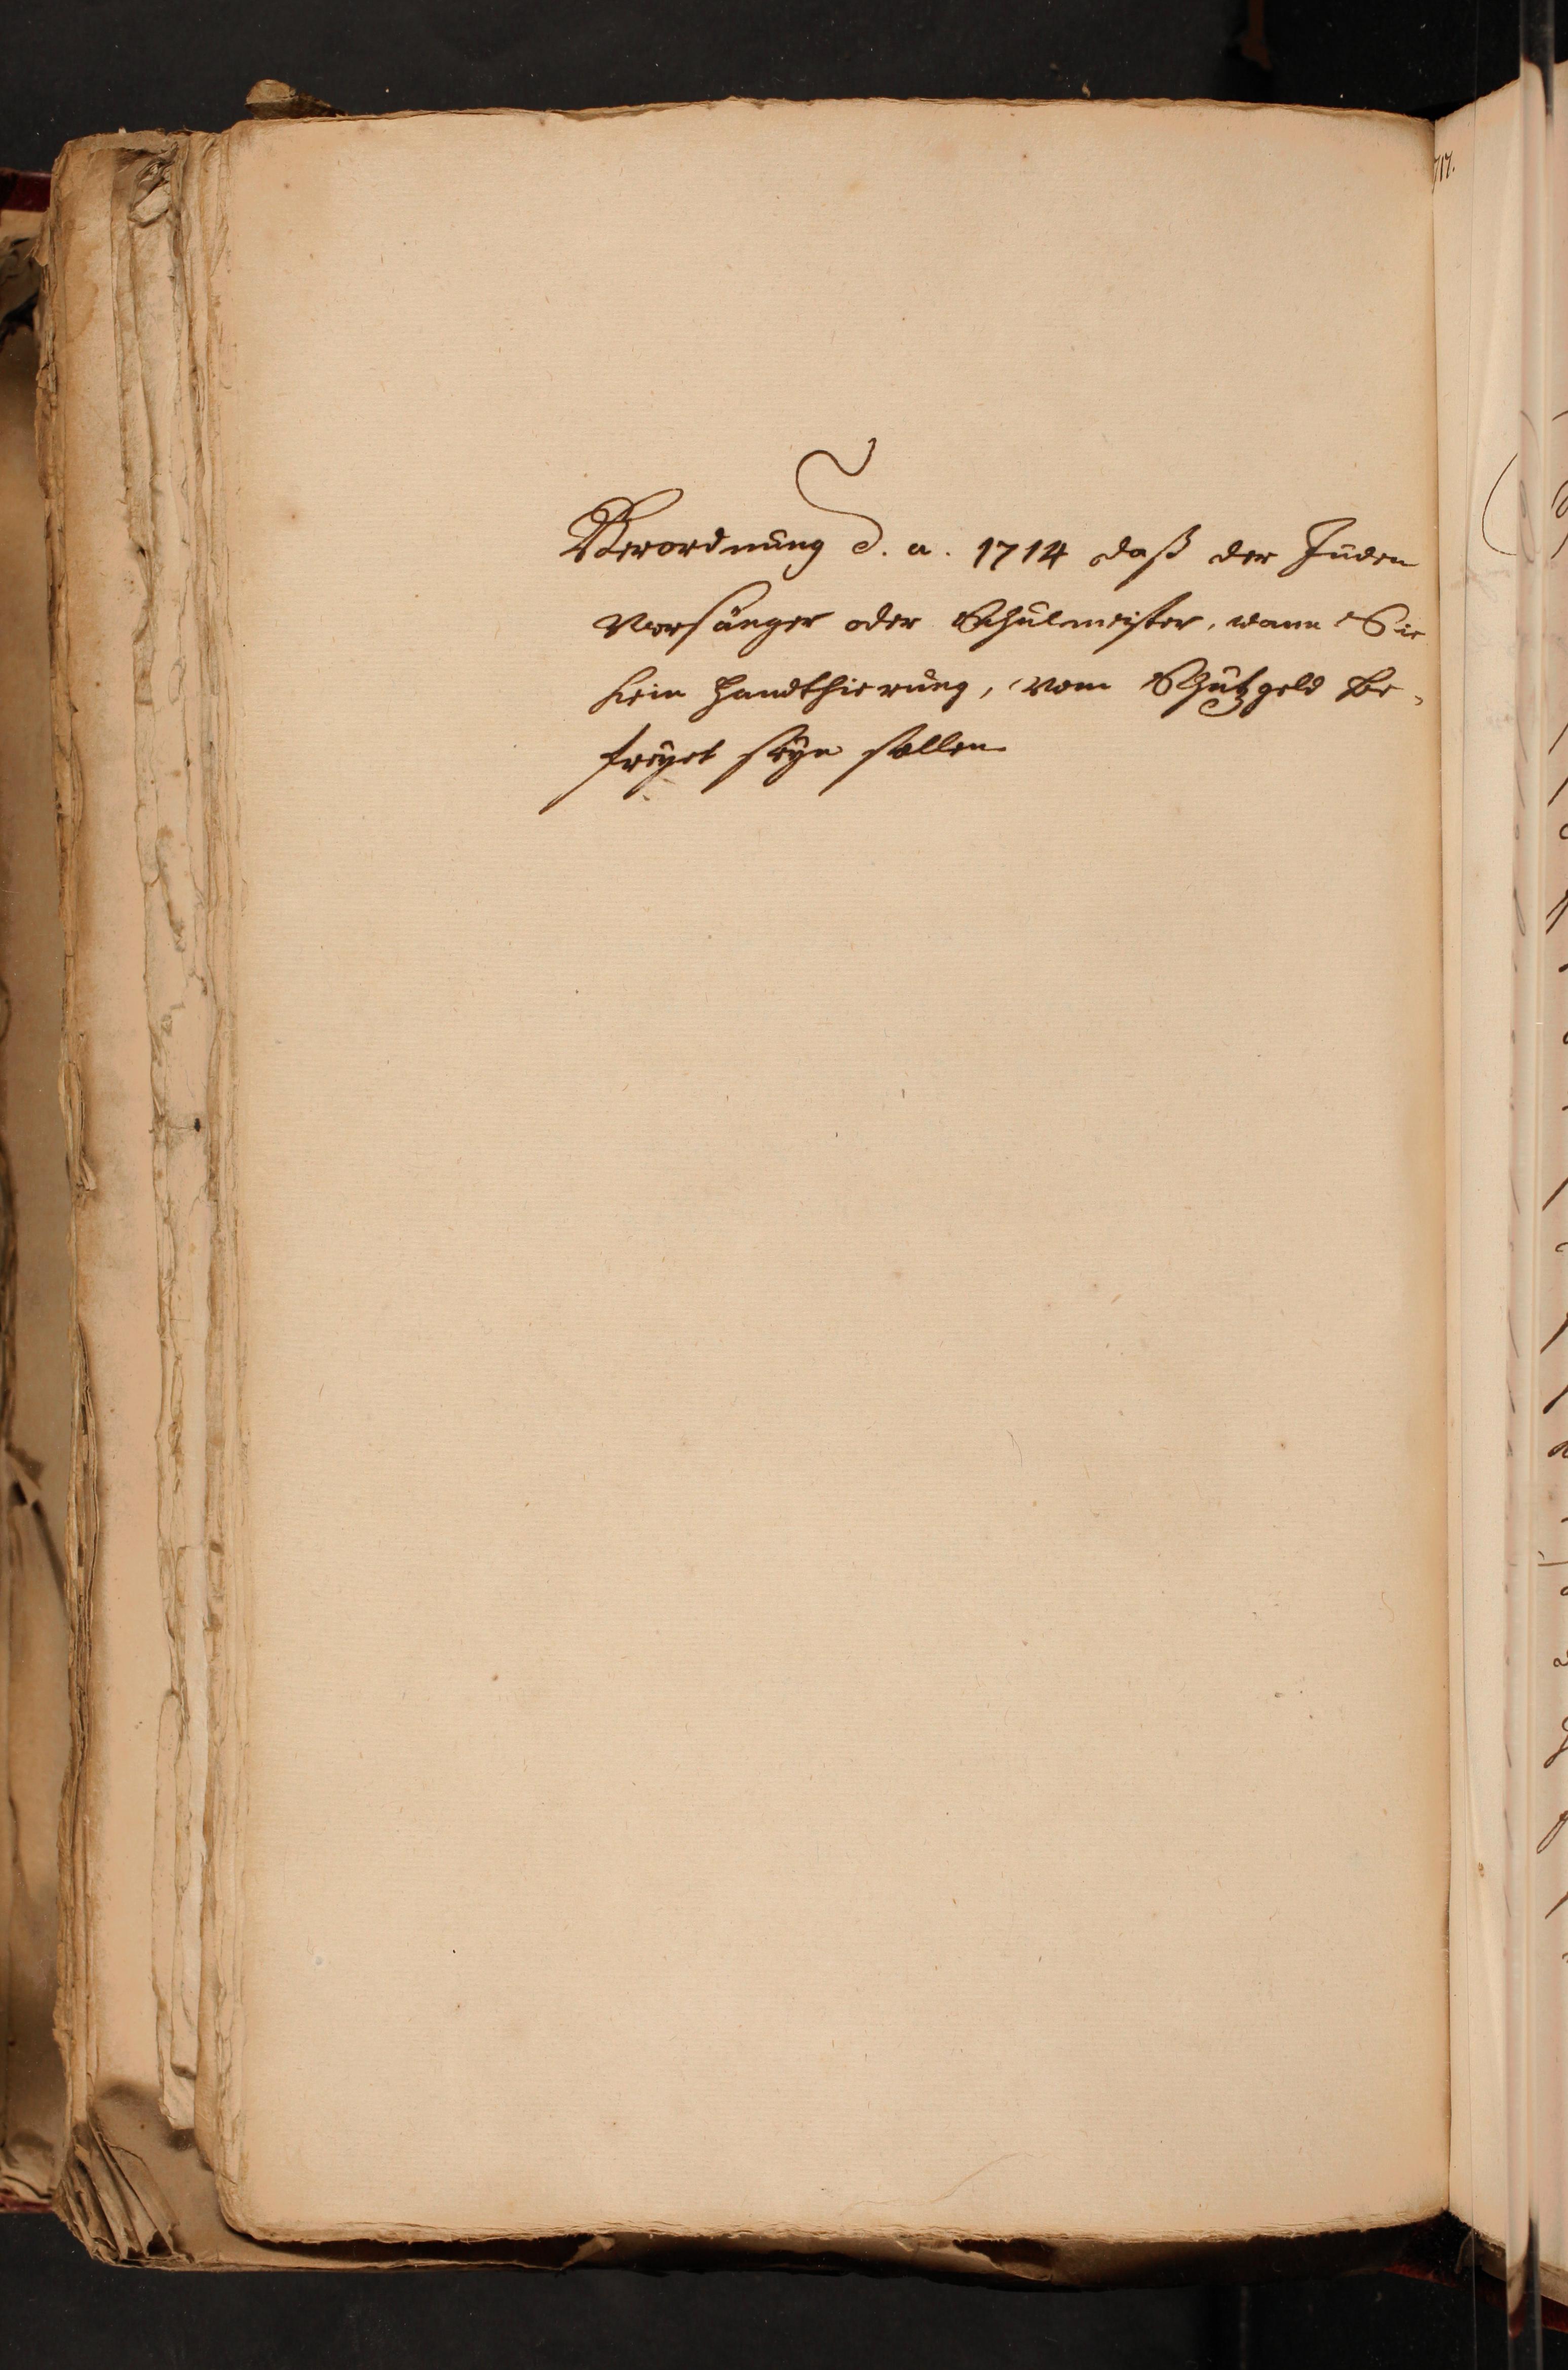 Verordnung d. a. 1714 daß der Juden
Vorsänger oder Schulmeister, wann Sie
kein Handthierung, vom Schutzgeld be-
freyet seyn sollen
717.